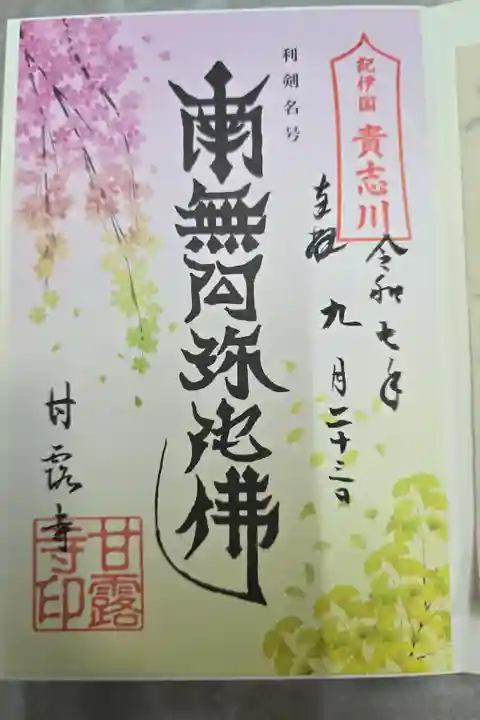 紀伊国
貴志川
令和七年
奉拝
九月二十三日
利剣名号
南無阿弥陀佛
甘露寺
甘露
寺印